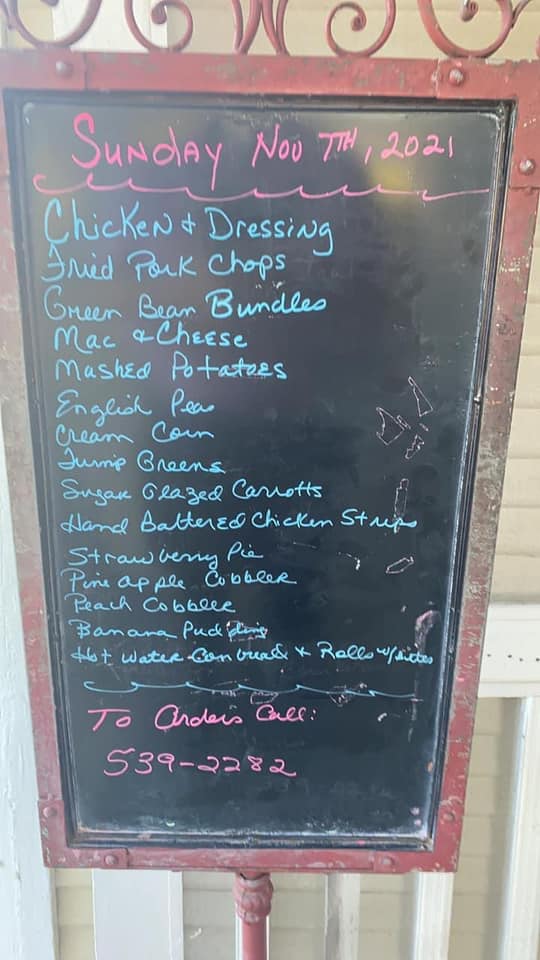 SUNdAY NOV 7TH, 2021
Chicken & Dressing
Fried Pork Chops
Green Bean Bundles
Mac & Cheese
Mashed Potatoes
English Peas
Cream Corn
Turnip Greens
Sugar Glazed Carrotts
Hand Battered Chicken Strips
Strawberry Pie
Pine apple Cobbler
Peach Cobbler
Banana Pudding
Hot Water Corn bread & Rolls w/
To Orders Call:
539-2282